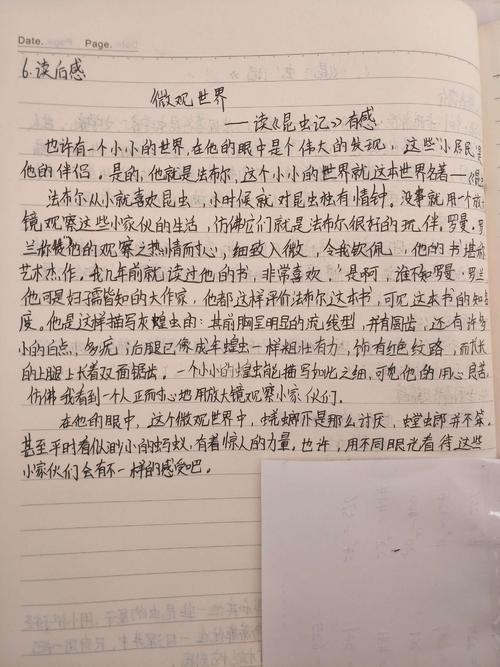 Date. Page.
6.读后感
微观世界
——读《昆虫记》有感
也许有一个小小的世界,在他的眼中是个伟大的发现,这些"小居民"是
他的伴侣,是的,他就是法布尔,这个小小的世界就这本世界名著——《昆
法布尔从小就喜欢昆虫,小时候就对昆虫独有情钟。没事就用一个放
镜观察这些小家伙的生活,仿佛它们就是法布尔很好的玩伴。罗曼·罗
兰称赞"他的观察之热情耐心,细致入微,令我钦佩,他的书堪称
艺术杰作。我几年前就读过他的书,非常喜欢。"是啊,谁不知罗曼·罗兰
他可是妇孺皆知的大作家,他都这样评价法布尔这本书,可见这本书的知名
度。他是这样描写灰蝗虫的:其前胸呈明显的流线型,并有圆齿,还有许多
小的白点,多疣;后腿已像成年蝗虫一样粗壮有力,饰有红色纹路,而长长
的上腿上长着双面锯齿。一个小小的蝗虫能描写如此之细,可见他的用心良苦,
仿佛我看到一个人正耐心地用放大镜观察小家伙们。
在他的眼中,这个微观世界中,蜣螂不是那么讨厌,螳虫郎并不笨,
甚至平时看似渺小的蚂蚁,有着惊人的力量,也许,用不同眼光看待这些
小家伙们会有不一样的感受吧。